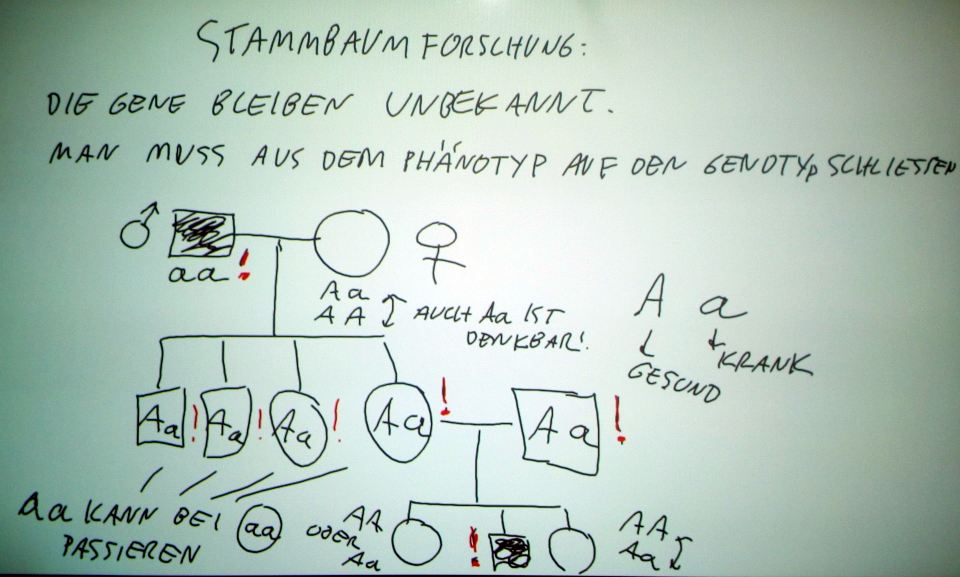 STAMMBAUMFORSCHUNG:
DIE GENE BLEIBEN UNBEKANNT.
MAN MUSS AUS DEM PHÄNOTYP AUF DEN GENOTYP SCHLIESSEN
aa!
Aa
AA
AUCH Aa IST
DENKBAR!
A a
GESUND
KRANK
Aa! Aa! Aa! Aa! Aa!
Aa KANN BEI aa
PASSIEREN
AA
ODER
Aa
!
AA
Aa